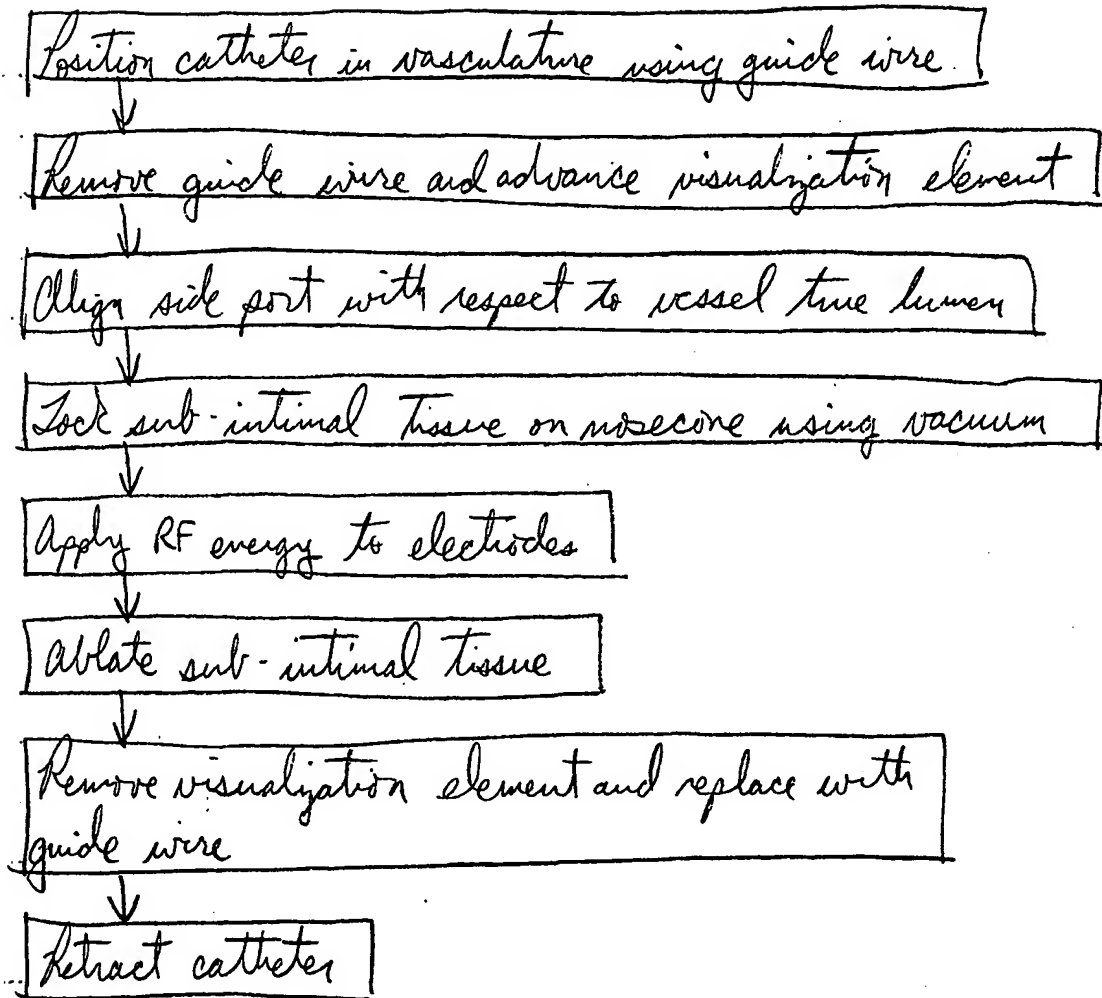 Position catheter in vasculature using guide wire.
Remove guide wire and advance visualization element
Align side port with respect to vessel true lumen
Lock sub-intimal tissue on nosecone using vacuum
Apply RF energy to electrodes
Ablate sub-intimal tissue
Remove visualization element and replace with
guide wire
Retract catheter